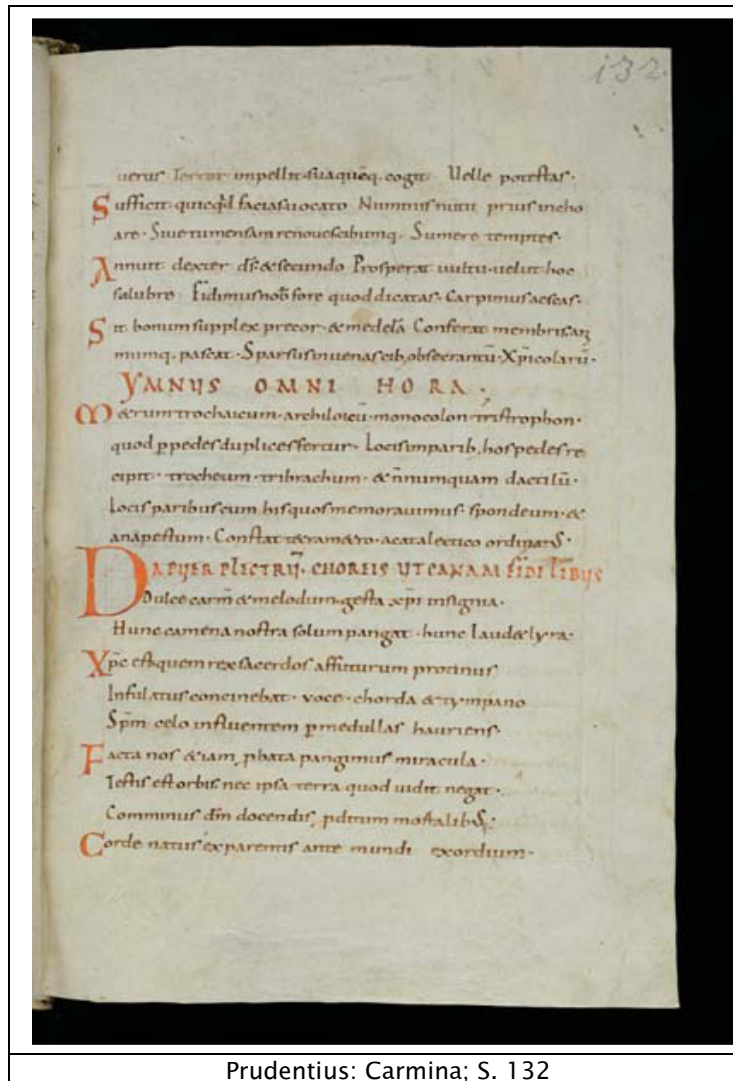 132.
uerus Terror impellit suaquēq. cogit Uelle potestas.
Sufficit quicqd facias uocato Numinis nutu prius incho
are. Siue tu mensam renoues cibumq. Sumere temptes.
Annuit dexter ds & secundo Prosperat uultu uelut hoc
salubre Fidimus nob fore quod dicatas. Carpimus aescas.
Sit bonum supplex precor & medelā Conferat membris
mumq. pascat. Sparsus in uenas cib, obsecrantū. Xpicolarū.
YMNUS OMNI HORA.
M&rum trochaicum. archiloicū. monocolon. tristrophon.
quod p pedes duplices fertur. Locis imparib, hos pedes re
cipit. trocheum. tribrachum. & nnumquam dactilū.
Locis paribus eum his quos memorauimus. spondeum. &
anapestum. Constat t&ram&ro. acatalectico
DA PUER PLECTRŪ. CHOREIS UT CANAM FIDELIBUS
Dulce carm & melodum. gesta xpi insignia.
Hunc camena nostra solum pangat. hunc laud& lyra.
Xpc est quem rex sacerdos affuturum protinus
Infulatus concinebat. uoce. chorda & tympano
Spm celo influentem p medullas hauriens.
Facta nos & iam, pbata pangimus miracula.
Testis est orbis nec ipsa terra quod uidit negat.
Comminus dm docendis, pditum
Corde natus ex parentis ante mundi exordium.
Prudentius: Carmina; S. 132